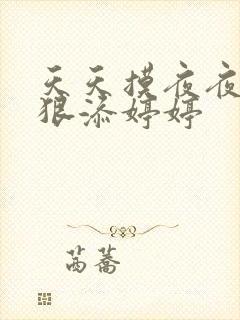 天天摸夜夜
狠添婷婷
茵蕎